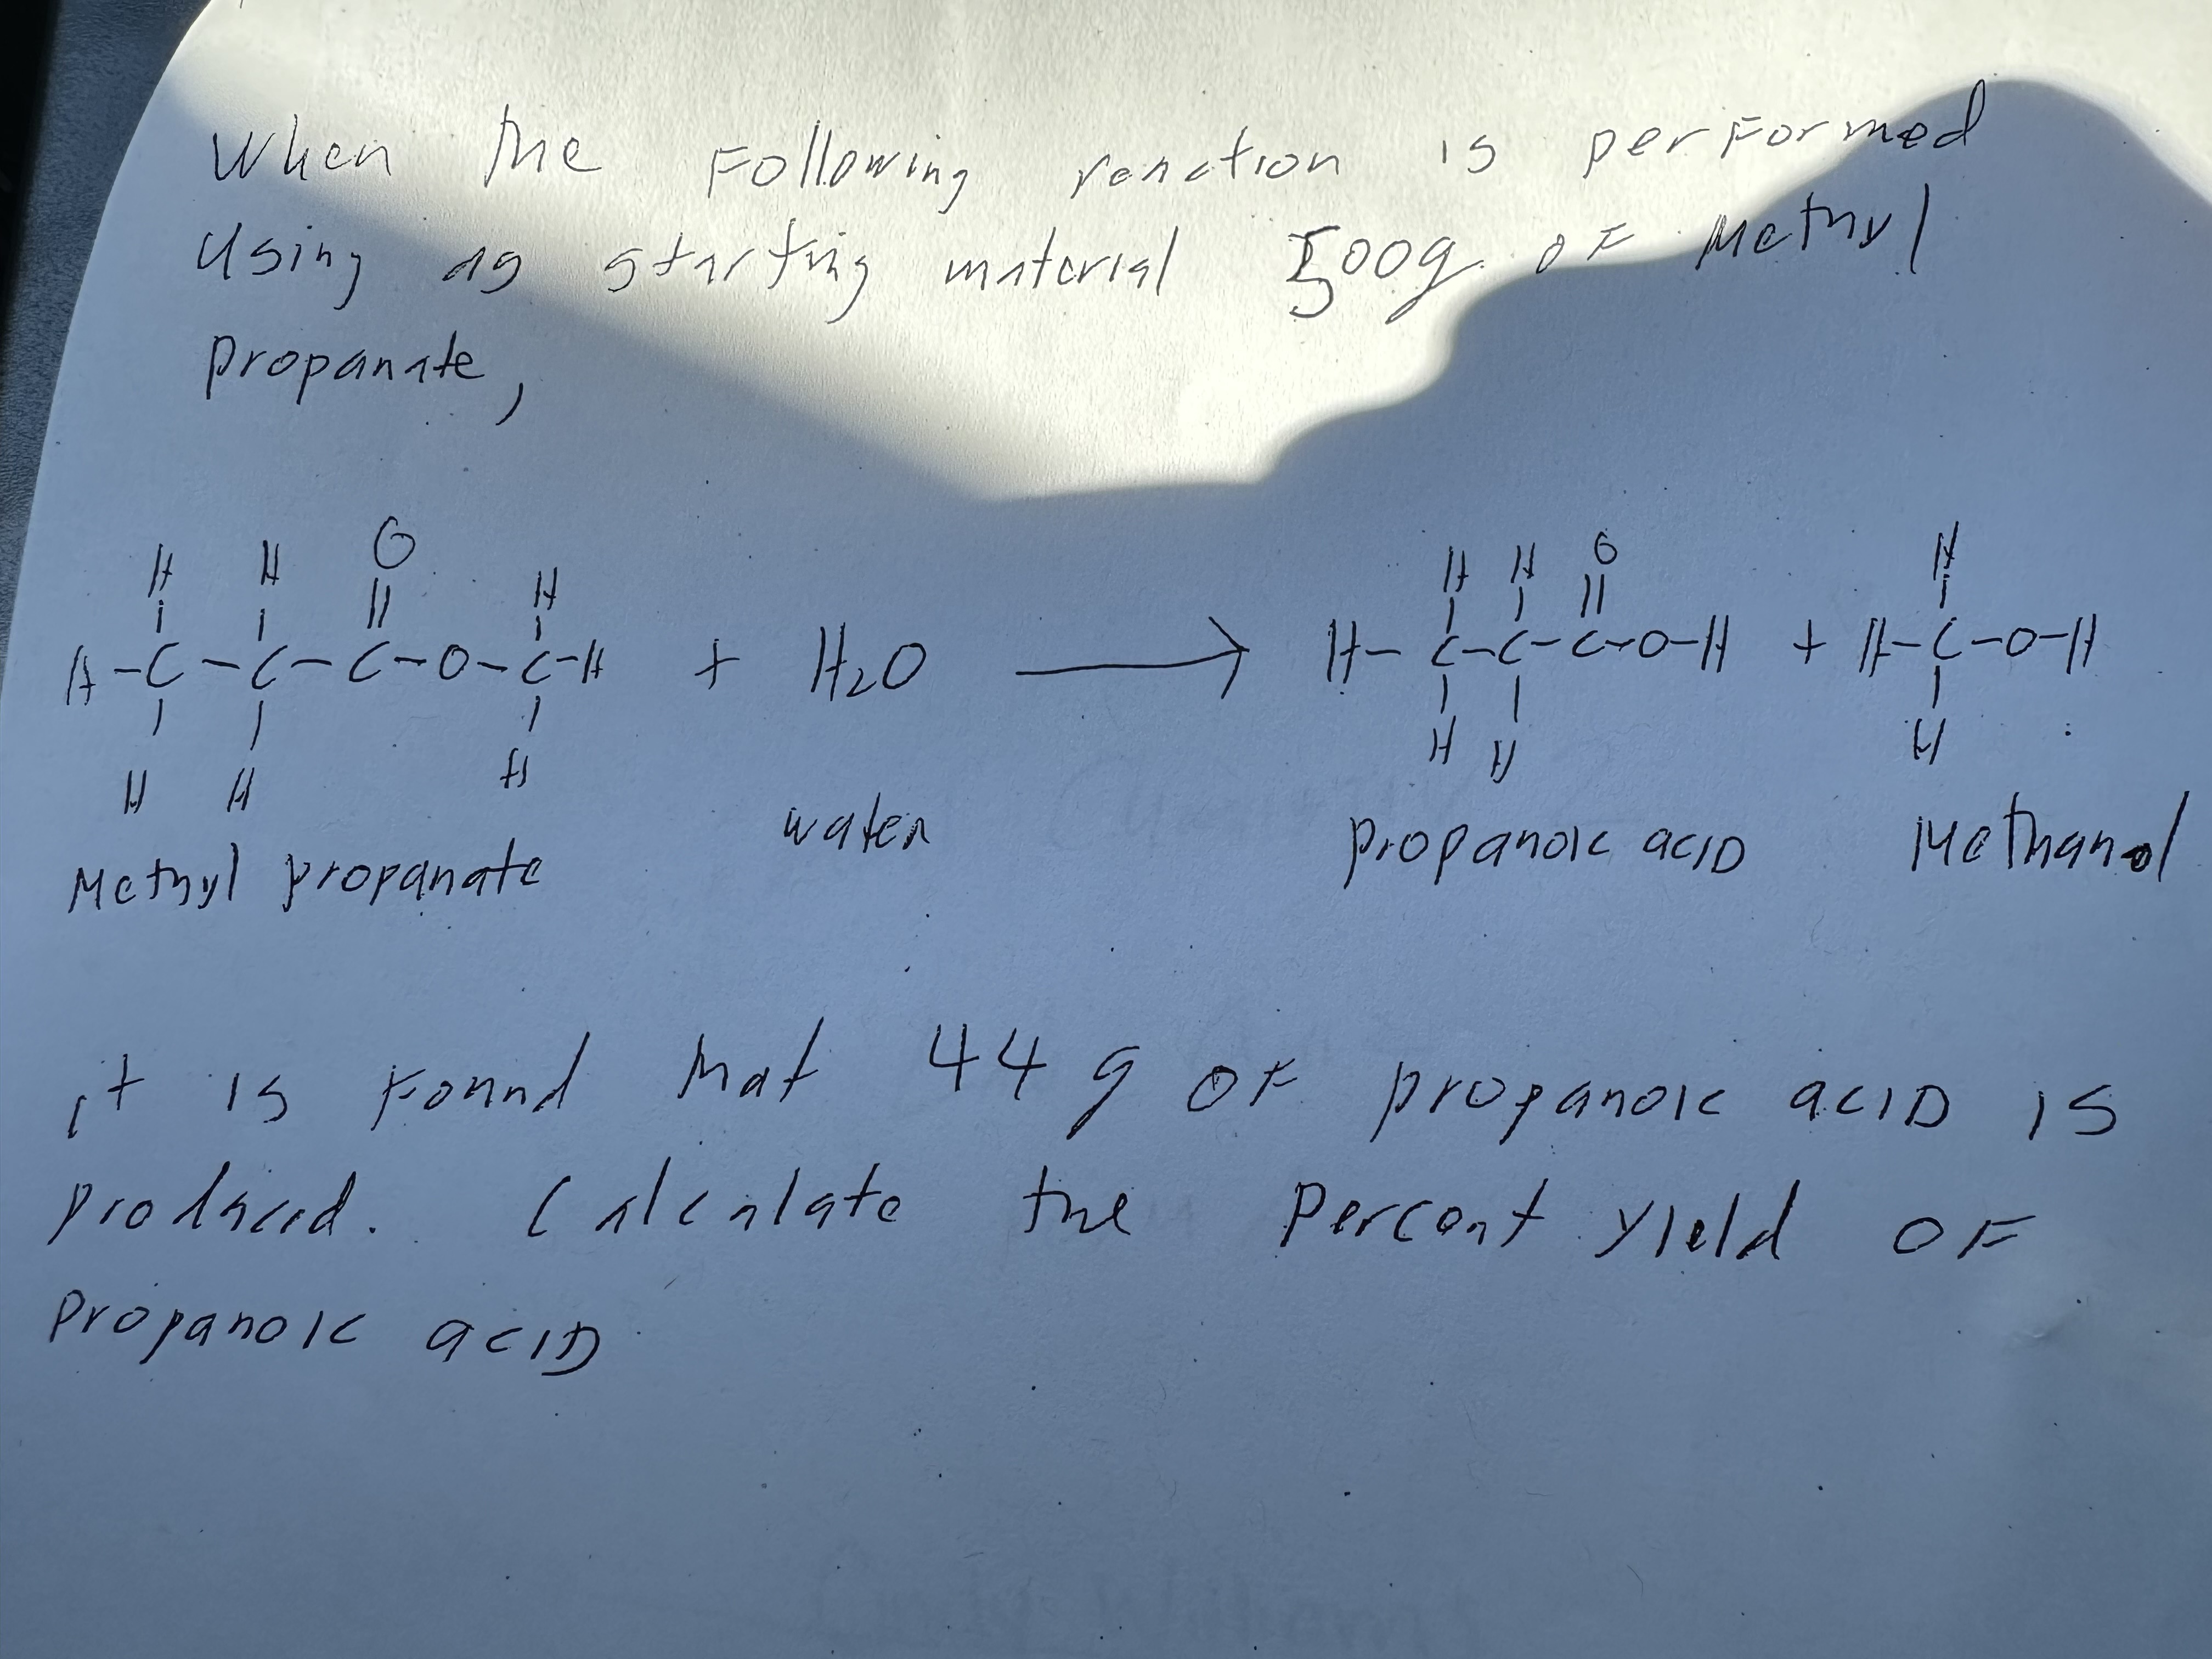 When the Following reaction is performed
Using as starting material 500g of Methyl
propanate,
H H O H
H-C-C-C-O-C-H + H2O → H-C-C-C-O-H + H-C-O-H
H H H
H H O H
H H H
Methyl propanate water propanoic acid Methanol
it is found that 44 g of propanoic acid is
produced. Calculate the percent yield of
propanoic acid